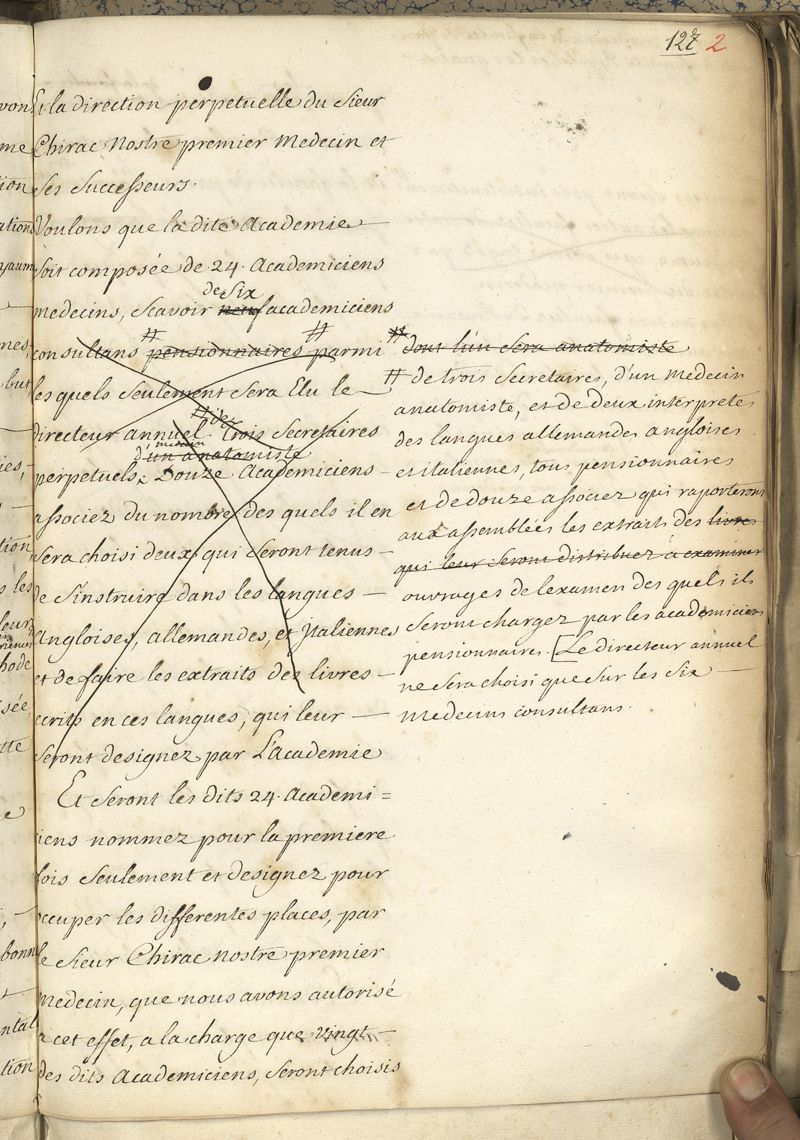 127 2
Et la direction perpetuelle du Sieur
Chirac Nostre premier Medecin et
Ses Successeurs.
Voulons que la dite Academie
Soit composée de 24. Academiciens
de Six
medecins, Scavoir neuf academiciens
consultans pensionnaires parmi
les quels Seulement Sera Elu le
directeur annuel. trois Secretaires
medecin
d'un anatomiste
perpetuels, Douze Academiciens
associez du nombre des quels il en
Sera choisi deux qui Seront tenus
de S'instruire dans les langues
Angloises, allemandes, et Italiennes
et de faire les extraits des livres
ecrits en ces langues, qui leur
Seront designez par L'academie
Et Seront les dits 24. Academi=
ciens nommez pour la premiere
fois Seulement et designez pour
occuper les differentes places, par
le Sieur Chirac nostre premier
Medecin, que nous avons autorisé
a cet effet, a la charge que vingt
des dits Academiciens, Seront choisis
dont l'un Sera anatomiste
# de trois Secretaires, d'un medecin
anatomiste, et de deux interpretes
des langues allemandes angloises
et italiennes, tous pensionnaires
et de douze associez qui raporteront
aux assemblées les extraits des livres
qui leur Seront distribuez a examiner
ouvrages de l'examen des quels ils
Seront chargez par les academiciens
pensionnaires. [Le directeur annuel
ne Sera choisi que Sur les Six
Medecins consultans.